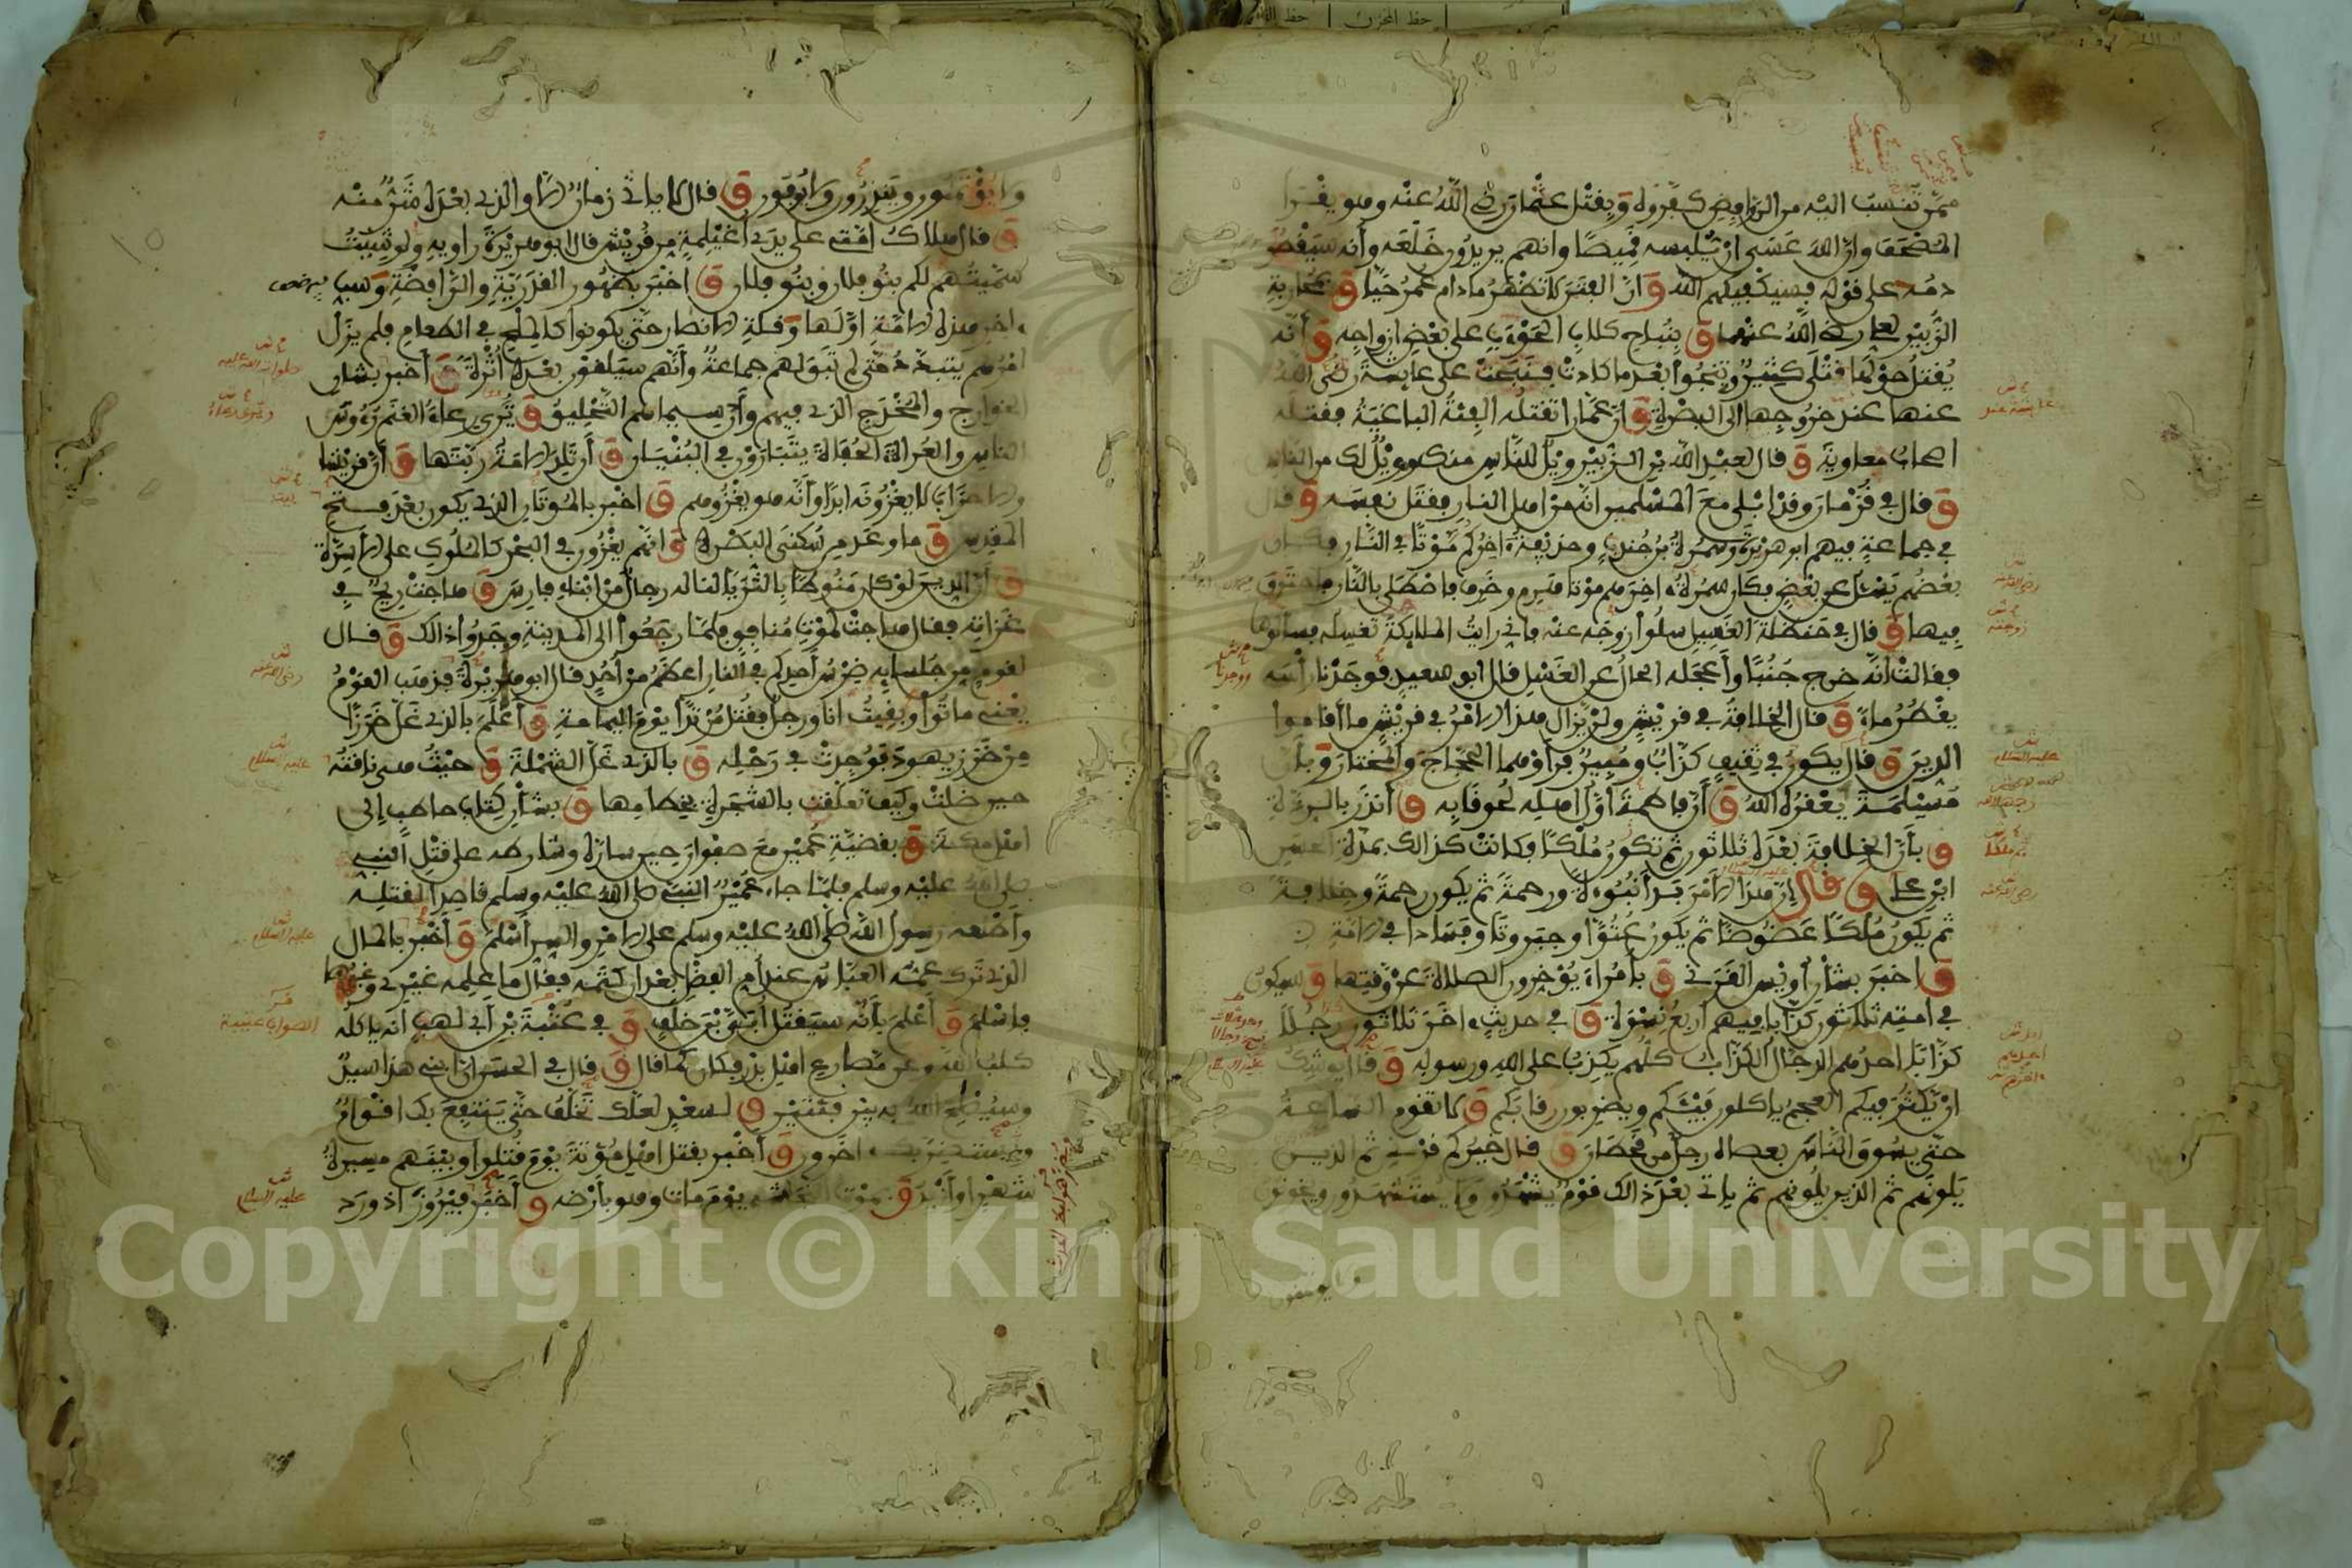 ممن تنسب اليه من الروافض كفروه وبقتل عثمان رضي الله عنه وهو يقرأ
المصحف وان الله عسى ان يلبسه قميصا وانهم يريدون خلعه وأنه سيقطر
دمه على قوله فسيكفيكهم الله وان الفتن لا تظهر ما دام عمر حيا وبمحاربة
الزبير لعلي رضي الله عنهما وبنباح كلاب الحوءب على بعض ازواجه وأنه
يقتل حولها قتلى كثير وتنجوا بعد ما كادت فنبحت على عايشة رضي الله
عنها عند خروجها الى البصرة وان عمارا تقتله الفئة الباغية فقتله
اصحاب معاوية وقال لعبد الله بن الزبير ويل للناس منك وويل لك من الناس
وقال في قزمان وقد ابلى مع المسلمين انه من اهل النار فقتل نفسه وقال
في جماعة فيهم ابو هريرة وسمرة بن جندب وحذيفة اخركم موتا في النار فكان
بعضهم يسئل عن بعض فكان سمرة اخرهم موتا هرم وخرف فاصطلى بالنار فاحترق
فيها وقال في حنظلة الغسيل سلوا زوجه عنه فاني رايت الملايكة تغسله فسألوها
فقالت انه خرج جنبا وأعجله الحال عن الغسل قال ابو سعيد فوجدنا رأسه
يقطر ماء وقال الخلافة في قريش ولن يزال هذا الامر في قريش ما أقاموا
الدين وقال يكون في ثقيف كذاب ومبير فرأوهما الحجاج والمختار وبأن
مسيلمة يعقره الله وأن فاطمة أول أهله لحوقا به وأنذر بالردة
وبأن الخلافة بعده ثلاثون ثم تكون ملكا فكانت كذالك بمدة الحسن
ابن علي وقال ان هذا الامر بدأ نبوءة ورحمة ثم يكون رحمة وخلافة
ثم يكون ملكا عضوضا ثم يكون عتوا وجبروتا وفسادا في الامة
واخبر بشأن أويس القرني وبأمراء يؤخرون الصلاة عن وقتها وسيكون
في امته ثلاثون كذابا فيهم أربع نسوة وفي حديث اخر ثلاثون رجلا
كذابا احدهم الدجال الكذاب كلهم يكذب على الله ورسوله وقال يوشك
ان يكثر فيكم العجم ياكلون فيئكم ويضربون رقابكم ولا تقوم الساعة
حتى يسوق الناس بعصاه رجل من قحطان وقال خيركم قرني ثم الذين
يلونهم ثم الذين يلونهم ثم ياتي بعد ذالك قوم يشهدون ولا يستشهدون ويخونون
ولا يؤتمنون وينذرون ولا يوفون وقال لا ياتي زمان الا والذي بعده شر منه
وقال هلاك امتي على يدي أغيلمة من قريش قال ابو هريرة راويه ولو شيت
سميتهم لكم بنو فلان وبنو فلان واخبر بظهور القدرية والرافضة وسب
اخر هذه الامة اولها وقلة الانصار حتى يكونوا كالملح في الطعام فلم يزل
امرهم يتبدد حتى لم تبق لهم جماعة وأنهم سيلقون بعده أثرة وأخبر بشان
الخوارج والمخدج الذي فيهم وأن سيماهم التحليق وترى رعاء الغنم رءوس
الناس والعراة الحفاة يتبارون في البنيان وأن تلد الامة ربتها وأن قريشا
والاحزاب لا يغزونه ابدا وأنه هو يغزوهم واخبر بالموتان الذي يكون بعد فتح
المقدس وما وعد من سكنى البصرة وانهم يغزون في البحر كالملوك على الاسرة
وأن الدين لو كان منوطا بالثريا لناله رجال من ابناء فارس وهاجت ريح في
غزاته فقال هاجت لموت منافق فلما رجعوا الى المدينة وجدوا ذالك وقال
لقوم من جلسايه ضرس أحدكم في النار اعظم من أحد قال ابو هريرة فذهب القوم
يعني ماتوا وبقيت انا ورجل فقتل مرتدا يوم اليمامة وأعلم بالذي غل خرزا
من خرز يهود فوجدت في رحله وبالذي غل الشملة وحيث هي ناقته
حين ضلت وكيف تعلقت بالشجرة بخطامها وبشأن كتاب حاطب الى
اهل مكة وبقضية عمير مع صفوان حين ساره وشارطه على قتل النبي
صلى الله عليه وسلم فلما جاء عمير النبي صلى الله عليه وسلم قاصدا لقتله
وأطلعه رسول الله صلى الله عليه وسلم على الامر والسر أسلم وأخبر بالمال
الذي ترك عمه العباس عند أم الفضل بعد ان كتمه فقال ما علمه غيري وغيرها
فاسلم وأعلم بأنه سيقتل أبي بن خلف وفي عتبة بن أبي لهب انه ياكله
كلب الله وعن مصارع اهل بدر فكان كما قال وقال في الحسن ان ابني هذا سيد
وسيصلح الله به بين فئتين ولسعد لعلك تخلف حتى ينتفع بك اقوام
ويستضر بك اخرون وأخبر بقتل اهل مؤتة يوم قتلوا وبينهم مسيرة
شهر او أزيد وبموت النجاشي يوم مات وهو بأرضه وأخبر فيروز اذ ورد
Copyright © King Saud University